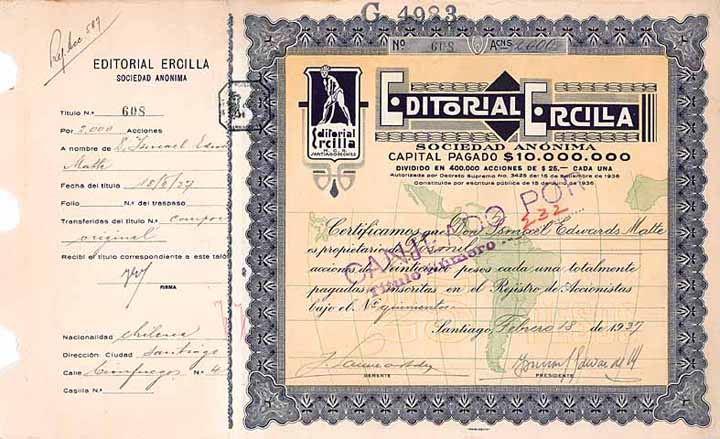 G 4983
Reg. Acc. 589
EDITORIAL ERCILLA
SOCIEDAD ANONIMA
Título N.º 608
Por 2,000 Acciones
A nombre de D. Ismael Edw
Matte
Fecha del título 18/2/37
Folio N.º del traspaso
Transferidas del título N.º
original
Recibí el título correspondiente a este taló
FIRMA
Nacionalidad chilena
Dirección: Ciudad Santiago
Calle N.º 4
Casilla N.º
Nº 608 ACNS. 2.000
Editorial
Ercilla
M.C.R.
SANTIAGO DE CHILE
EDITORIAL ERCILLA
SOCIEDAD ANÓNIMA
CAPITAL PAGADO $10.000.000
DIVIDIDO EN 400.000 ACCIONES DE $ 25.— CADA UNA
Autorizada por Decreto Supremo No. 3425 del 15 de Setiembre de 1936
Constituída por escritura pública de 15 de Junio de 1936
CANJEADO POR
Título número 532
Certificamos que Don Ismael Edwards Matte
es propietario de dos mil
acciones de veinticinco pesos cada una totalmente
pagadas e inscritas en el Registro de Accionistas
bajo el Nº quinientos
Santiago, Febrero 18 de 1937
GERENTE
PRESIDENTE